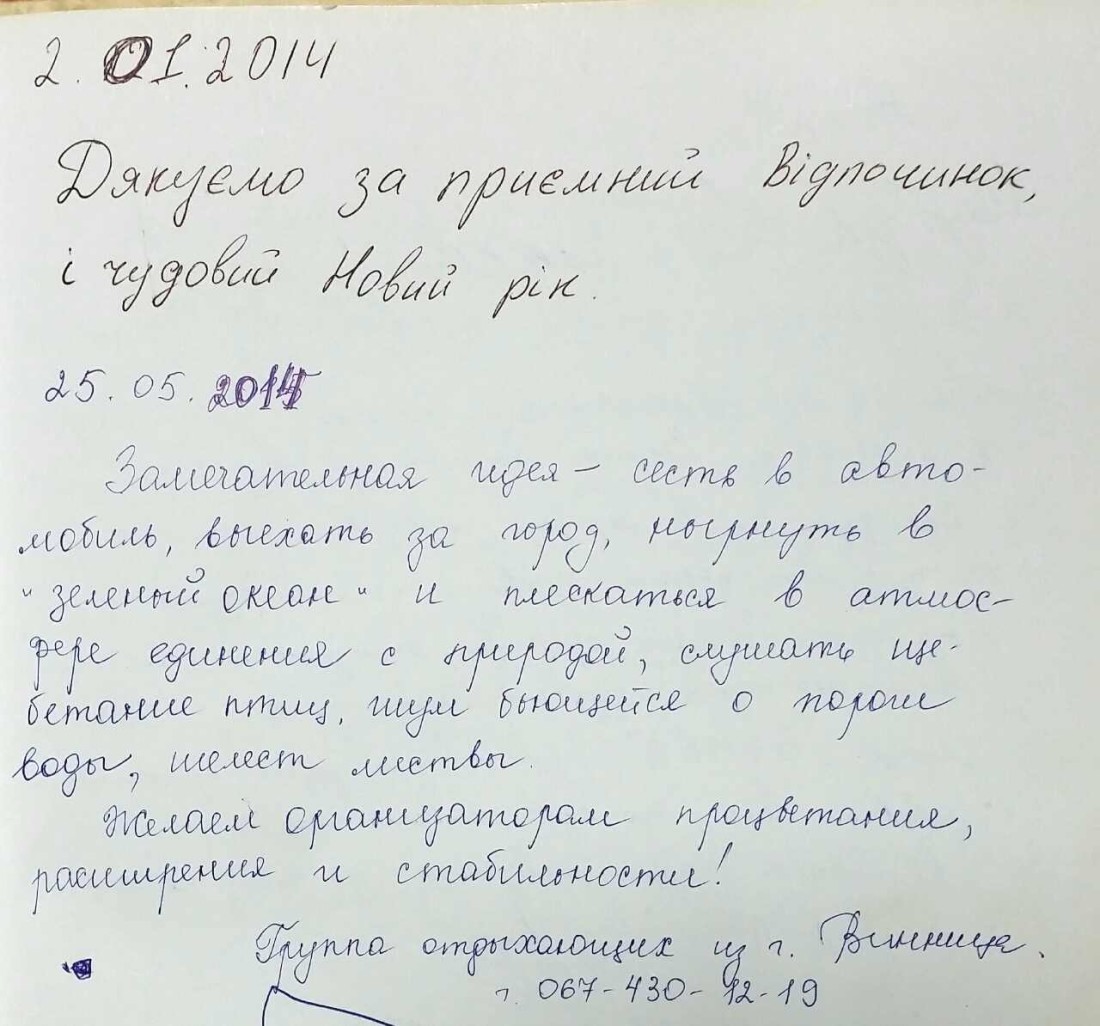 2. 01. 2014
Дякуємо за приємний Відпочинок,
і чудовий Новий рік.
25. 05. 2014
Замечательная идея – сесть в авто-
мобиль, выехать за город, нырнуть в
"зеленый океан" и плескаться в атмос-
фере единения с природой, слушать ще-
бетание птиц, шум бьющейся о пороги
воды, шелест листвы.
Желаем организаторам процветания,
расширения и стабильности!
Группа отдыхающих из г. Винница.
т. 067-430-12-19